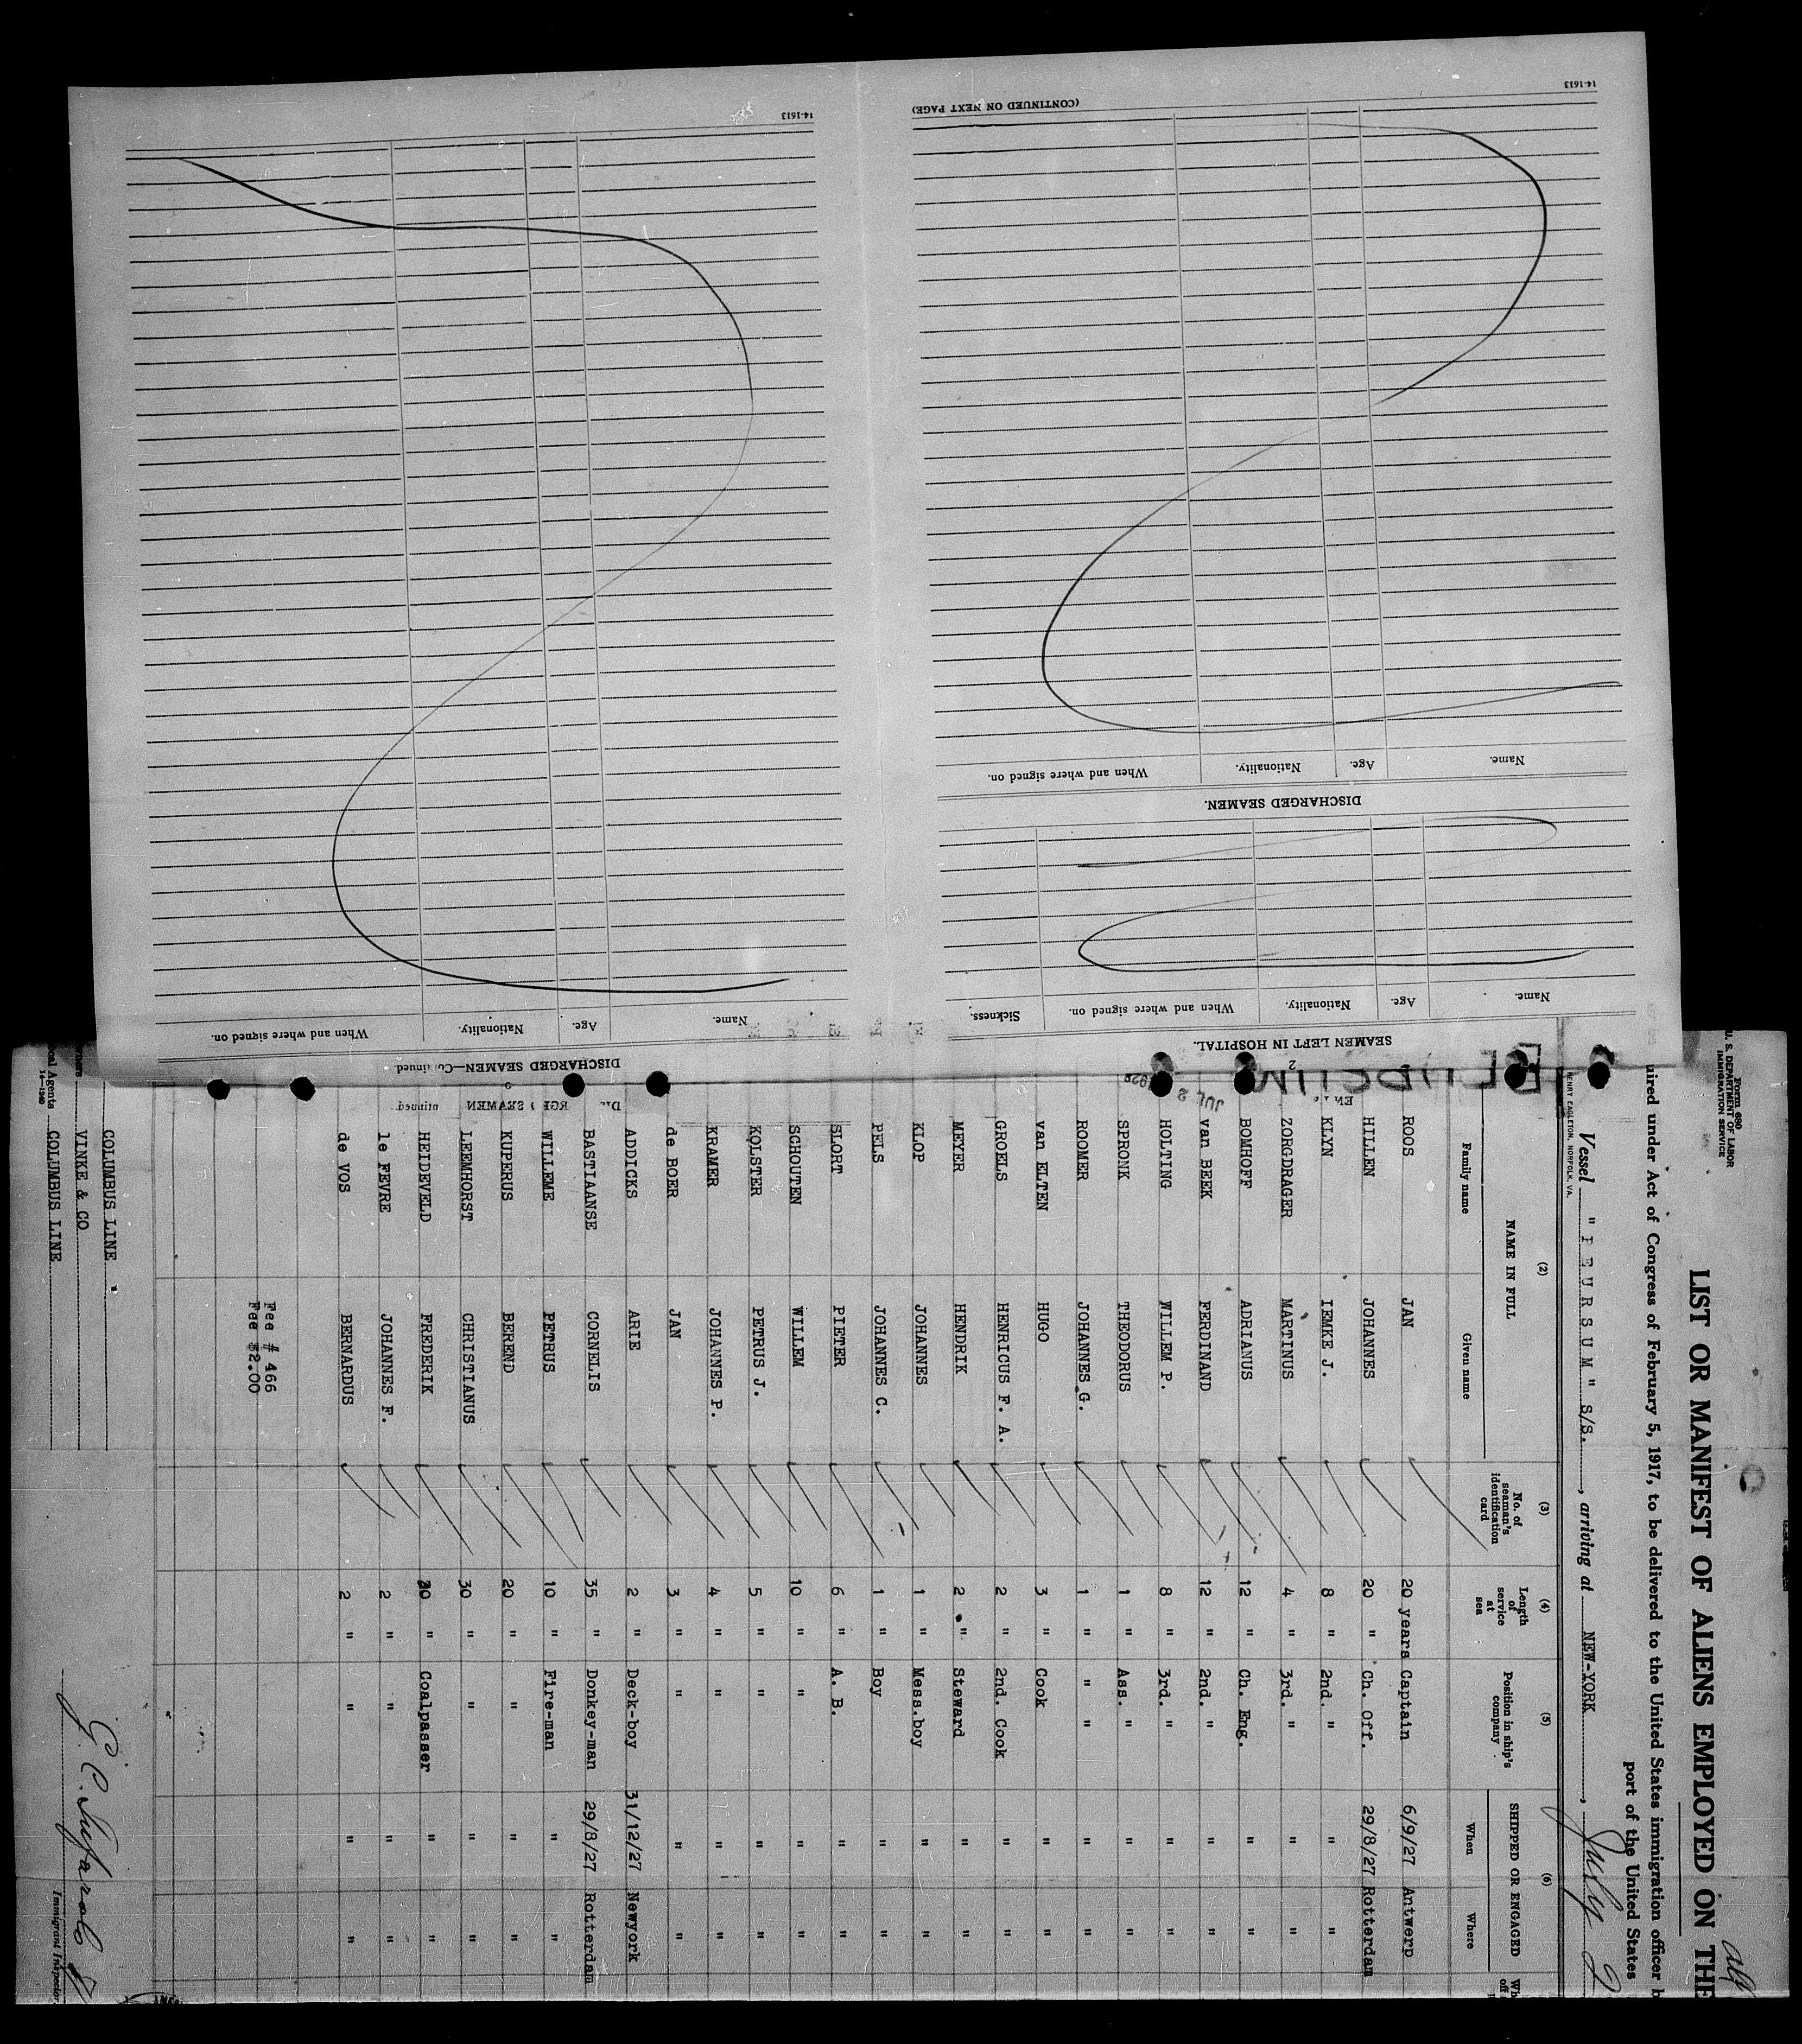 14-1613
(CONTINUED ON NEXT PAGE)
14-1613
SEAMEN LEFT IN HOSPITAL.
Name. Age. Nationality. When and where signed on. Sickness.
DISCHARGED SEAMEN.
Name. Age. Nationality. When and where signed on.
DISCHARGED SEAMEN—Continued
Name. Age. Nationality. When and where signed on.
Form 680
U. S. DEPARTMENT OF LABOR
IMMIGRATION SERVICE
LIST OR MANIFEST OF ALIENS EMPLOYED ON THE
uired under Act of Congress of February 5, 1917, to be delivered to the United States immigration officer b
port of the United States
Vessel " P E U R S U M " S/S. , arriving at NEW-YORK , July 2
HENRY EAGLETON, NORFOLK, VA.
JUL 2 1928
(2) (3) (4) (5) (6)
NAME IN FULL No. of seaman's identification card Length of service at sea Position in ship's company SHIPPED OR ENGAGED
Family name Given name When Where
ROOS JAN 20 years Captain 6/9/27 Antwerp
HILLEN JOHANNES 20 " Ch. Off. 29/8/27 Rotterdam
KLYN IEMKE J. 8 " 2nd. " " "
ZORGDRAGER MARTINUS 4 " 3rd. " " "
BOMHOFF ADRIANUS 12 " Ch. Eng. " "
van BEEK FERDINAND 12 " 2nd. " " "
HOLTING WILLEM P. 8 " 3rd. " " "
SPRONK THEODORUS 1 " Ass. " " "
ROOMER JOHANNES G. 1 " " " " "
van ELTEN HUGO 3 " Cook " "
GROELS HENRICUS F. A. 2 " 2nd. Cook " "
MEYER HENDRIK 2 " Steward " "
KLOP JOHANNES 1 " Mess.boy " "
PELS JOHANNES C. 1 " Boy " "
SLORT PIETER 6 " A. B. " "
SCHOUTEN WILLEM 10 " " " "
KOLSTER PETRUS J. 5 " " " "
KRAMER JOHANNES P. 4 " " " "
de BOER JAN 3 " " " "
ADDICKS ARIE 2 " Deck-boy 31/12/27 Newyork
BASTIAANSE CORNELIS 35 " Donkey-man 29/8/27 Rotterdam
WILLEME PETRUS 10 " Fire-man " "
KUPERUS BEREND 20 " " " "
LEEMHORST CHRISTIANUS 30 " " " "
HEIDEVELD FREDERIK " Coalpasser " "
le FEVRE JOHANNES F. 2 " " " "
de VOS BERNARDUS 2 " " " "
Fee # 466
Fee $2.00
COLUMBUS LINE
VINKE & CO
COLUMBUS LINE
14-1240
Immigrant Inspector